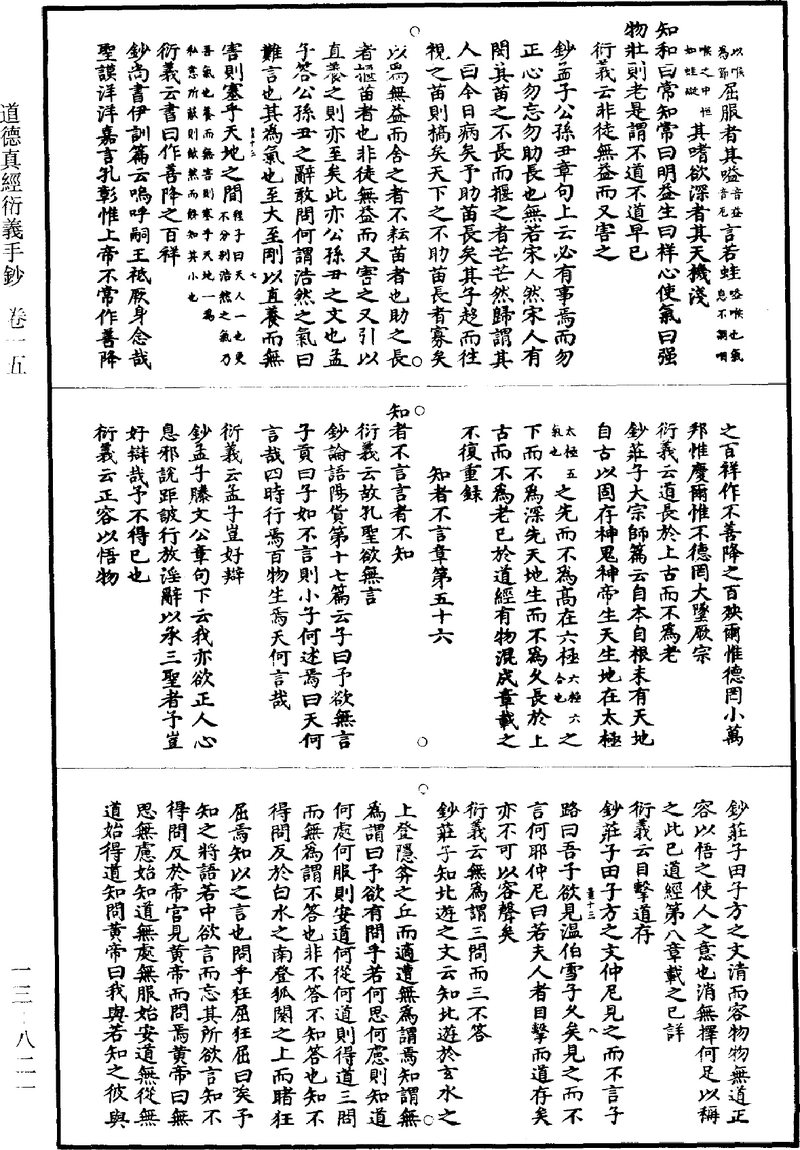 道德真經衍義手鈔　卷一五
一三－八二一
以喉
為節屈服者其嗌音益音厄言若蛙嗌喉也氣息不調咽
喉之中恒
如蛙礙其嗜欲深者其天機淺
知和曰常知常曰明益生曰祥心使氣曰强
物壯則老是謂不道不道早已
衍義云非徒無益而又害之
鈔孟子公孫丑章句上云必有事焉而勿
正心勿忘勿助長也無若宋人然宋人有
閔其苗之不長而揠之者芒芒然歸謂其
人曰今日病矣予助苗長矣其子趍而往
視之苗則槁矣天下之不助苗長者寡矣
以爲無益而舍之者不耘苗者也助之長
者揠苗者也非徒無益而又害之又引以
直養之則亦至矣此亦公孫丑之文也孟
子答公孫丑之辭敢問何謂浩然之氣曰
難言也其爲氣也至大至剛以直養而無
害則塞乎天地之間程子曰天人一也更不分别浩然之氣乃
吾氣也養而無害則塞乎天地一爲
私意所蔽則欿然而餒知其小也
衍義云書曰作善降之百祥
鈔尚書伊訓篇云嗚呼嗣王祗厥身念哉
聖謨洋洋嘉言孔彰惟上帝不常作善降
之百祥作不善降之百殃爾惟德罔小萬
邦惟慶爾惟不德罔大墜厥宗
衍義云道長於上古而不爲老
鈔莊子大宗師篇云自本自根未有天地
自古以固存神鬼神帝生天生地在太極
太極五氣也之先而不爲高在六極六極六合也之
下而不爲深先天地生而不爲久長於上
古而不爲老已於道經有物混成章載之
不復重録
知者不言章第五十六
知者不言言者不知
衍義云故孔聖欲無言
鈔論語陽貨第十七篇云子曰予欲無言
子貢曰子如不言則小子何述焉曰天何
言哉四時行焉百物生焉天何言哉
衍義云孟子豈好辯
鈔孟子滕文公章句下云我亦欲正人心
息邪說距詖行放淫辭以承三聖者予豈
好辯哉予不得已也
衍義云正容以悟物
鈔莊子田子方之文清而容物物無道正
容以悟之使人之意也消無擇何足以稱
之此已道經第八章載之已詳
衍義云目擊道存
鈔莊子田子方之文仲尼見之而不言子
路曰吾子欲見温伯雪子久矣見之而不
言何耶仲尼曰若夫人者目擊而道存矣
亦不可以容聲矣
衍義云無爲謂三問而三不答
鈔莊子知北遊之文云知北遊於玄水之
上登隱弅之丘而適遭無爲謂焉知謂無
爲謂曰予欲有問乎若何思何慮則知道
何處何服則安道何從何道則得道三問
而無爲謂不答也非不答不知答也知不
得問反於白水之南登狐闋之上而睹狂
屈焉知以之言也問乎狂屈狂屈曰唉予
知之將語若中欲言而忘其所欲言知不
得問反於帝宫見黄帝而問焉黄帝曰無
思無慮始知道無處無服始安道無從無
道始得道知問黄帝曰我與若知之彼與